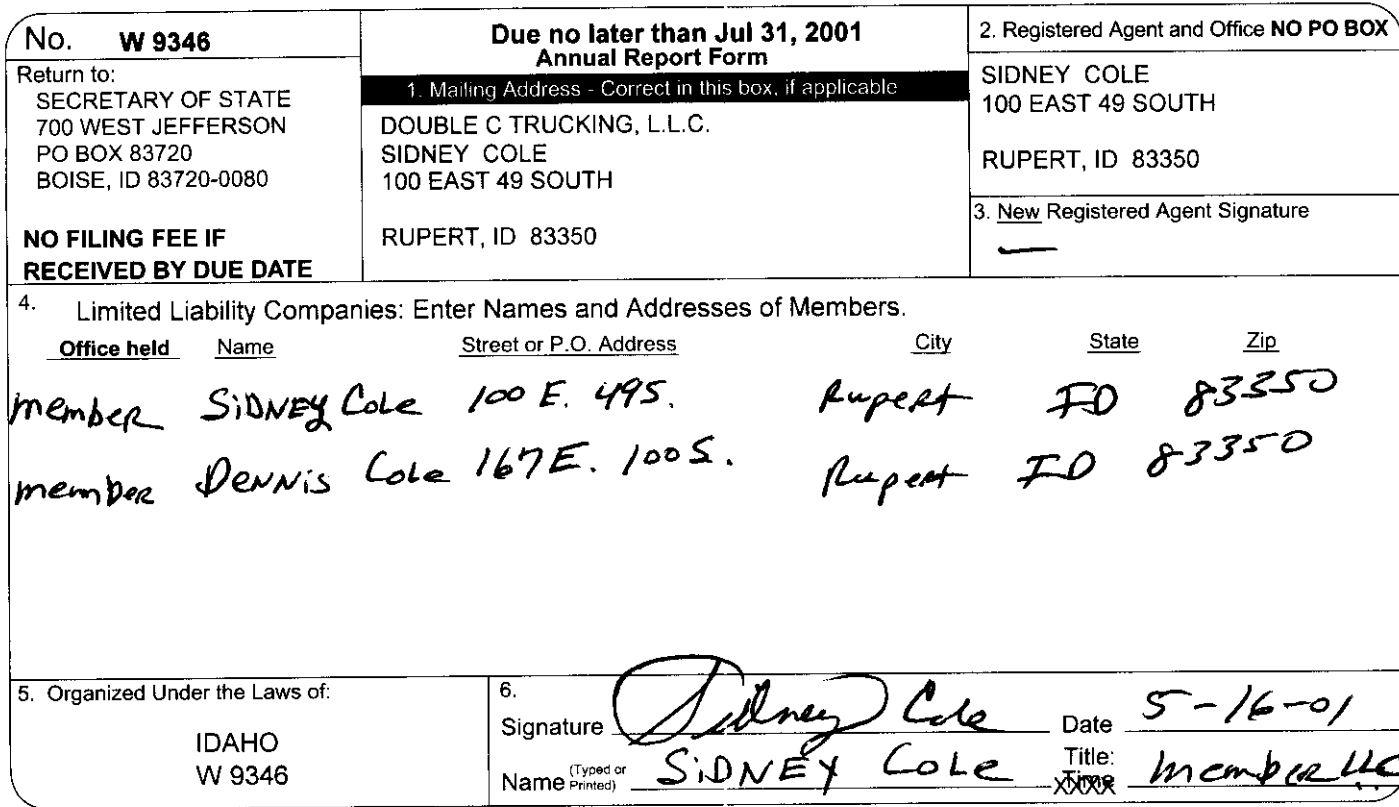 No. W 9346
Return to:
SECRETARY OF STATE
700 WEST JEFFERSON
PO BOX 83720
BOISE, ID 83720-0080
NO FILING FEE IF
RECEIVED BY DUE DATE
Due no later than Jul 31, 2001
Annual Report Form
1. Mailing Address - Correct in this box, if applicable
DOUBLE C TRUCKING, L.L.C.
SIDNEY COLE
100 EAST 49 SOUTH
RUPERT, ID 83350
2. Registered Agent and Office NO PO BOX
SIDNEY COLE
100 EAST 49 SOUTH
RUPERT, ID 83350
3. New Registered Agent Signature
4. Limited Liability Companies: Enter Names and Addresses of Members.
Office held Name Street or P.O. Address City State Zip
member SiDNEY Cole 100 E. 49S. Rupert ID 83350
member DeNNis Cole 167E. 100S. Rupert ID 83350
5. Organized Under the Laws of:
IDAHO
W 9346
6.
Signature Sidney Cole Date 5-16-01
Name (Typed or Printed) SiDNEY Cole Title: member LLC